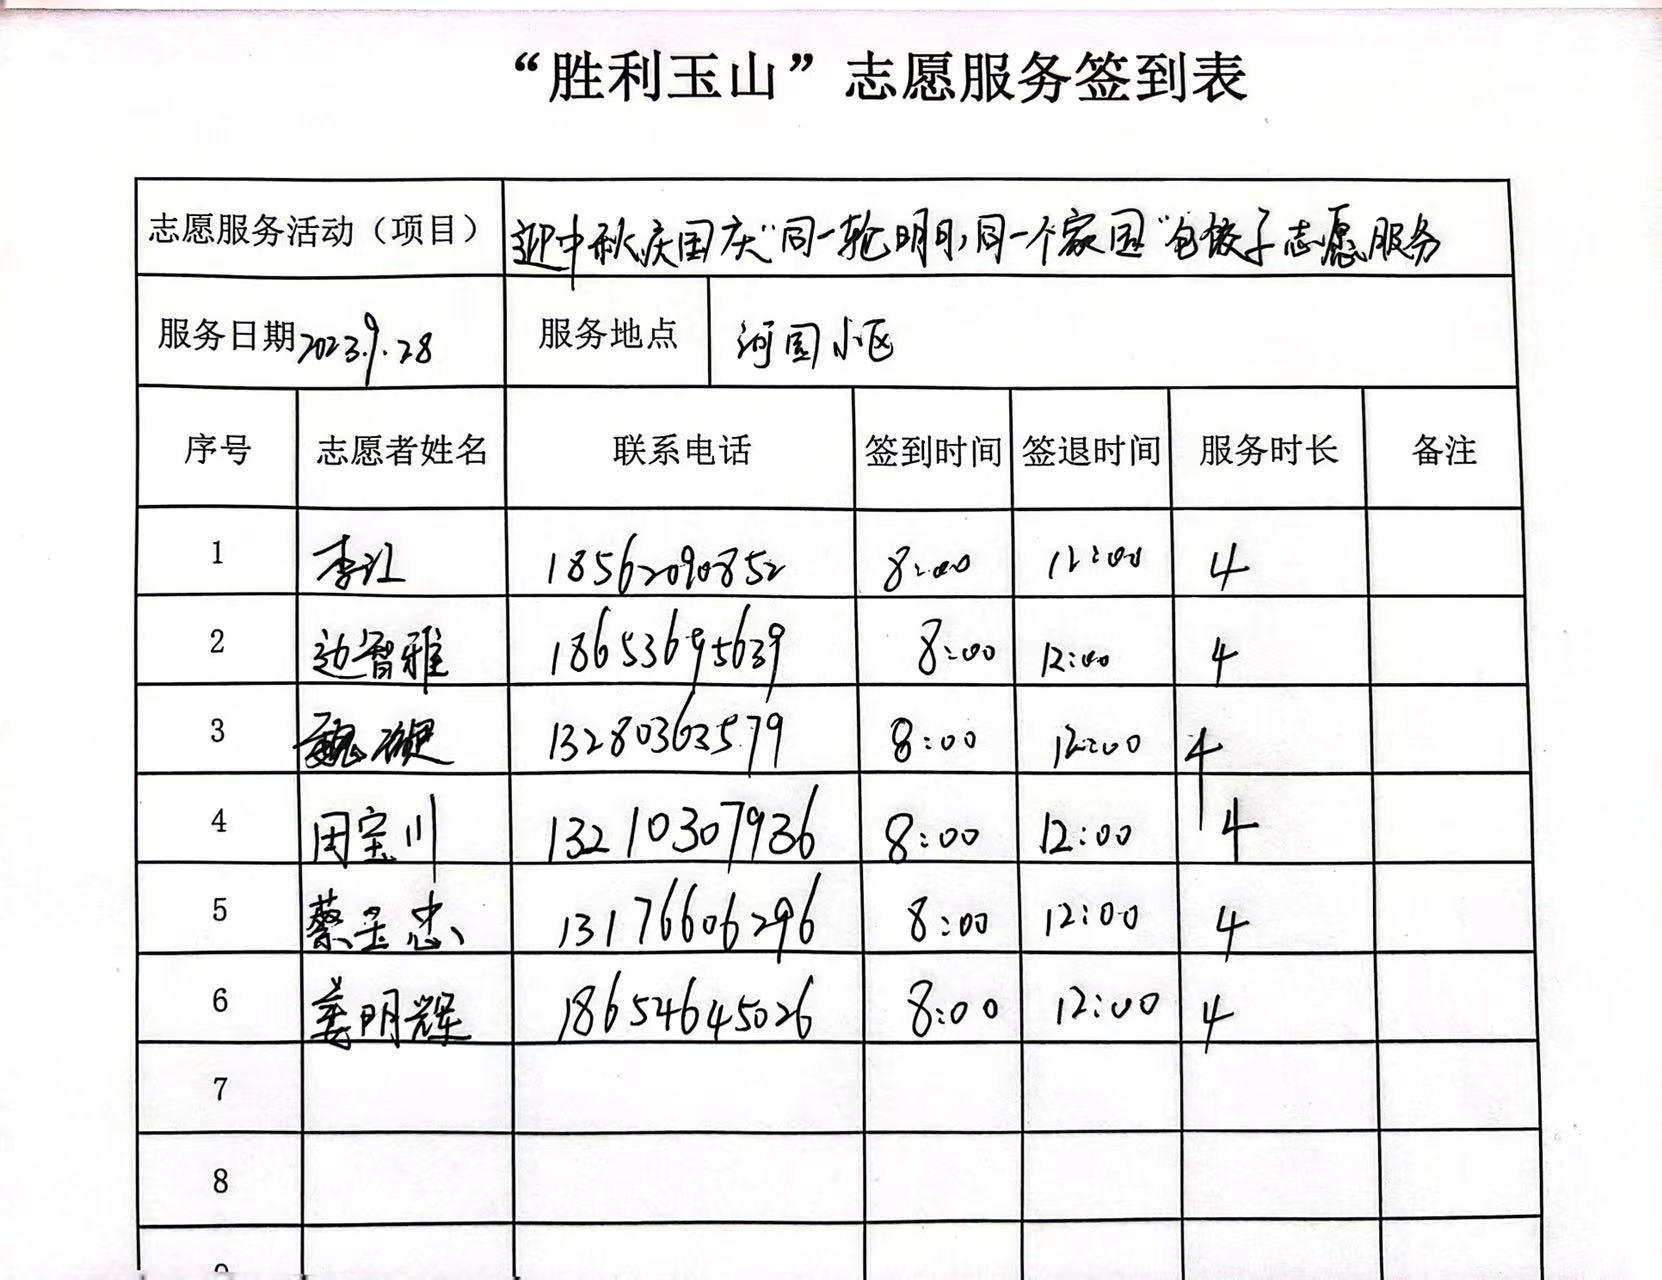 “胜利玉山”志愿服务签到表
志愿服务活动（项目） 迎中秋庆国庆“同一轮明月,同一个家国”包饺子志愿服务
服务日期 2023.9.28 服务地点 河园小区
序号 志愿者姓名 联系电话 签到时间 签退时间 服务时长 备注
1 李江 18562090852 8:00 12:00 4
2 边智雅 18653695639 8:00 12:00 4
3 魏硬 13280363579 8:00 12:00 4
4 田宝川 13210307936 8:00 12:00 4
5 蔡呈忠 13176606296 8:00 12:00 4
6 姜明辉 18654645026 8:00 12:00 4
7
8